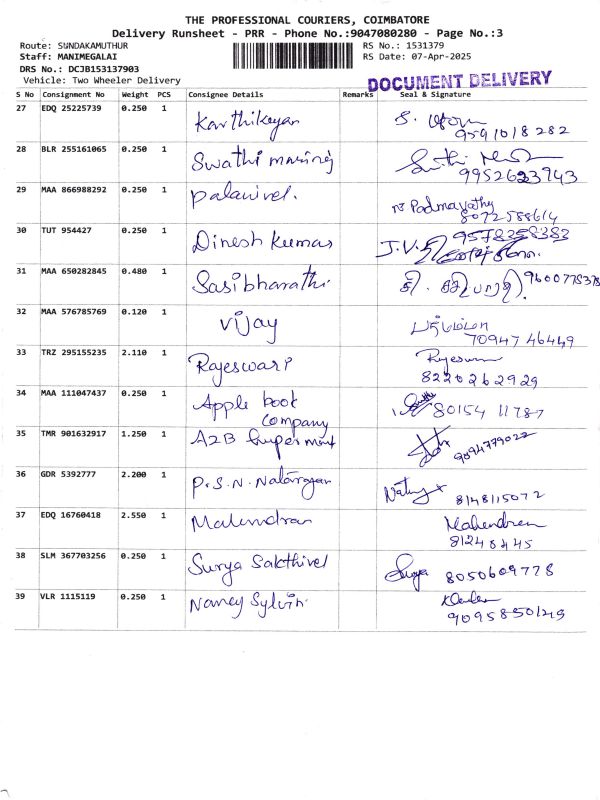 THE PROFESSIONAL COURIERS, COIMBATORE
Delivery Runsheet - PRR - Phone No.:9047080280 - Page No.:3
Route: SUNDAKAMUTHUR RS No.: 1531379
Staff: MANIMEGALAI RS Date: 07-Apr-2025
DRS No.: DCJB153137903
Vehicle: Two Wheeler Delivery DOCUMENT DELIVERY
S No Consignment No Weight PCS Consignee Details Remarks Seal & Signature
27 EDQ 25225739 0.250 1 Karthikeyan S.
9591018282
28 BLR 255161065 0.250 1 Swathi
9952623943
29 MAA 866988292 0.250 1 Palanivel. Padmavathy
8072588614
30 TUT 954427 0.250 1 Dinesh Kumar 9578358383
J.V.
31 MAA 650282845 0.480 1 Sasibharathi 9600778378
32 MAA 576785769 0.120 1 Vijay
70947 46449
33 TRZ 295155235 2.110 1 Rajeswari
8220262929
34 MAA 111047437 0.250 1 Apple book
Company 80154 11787
35 TMR 901632917 1.250 1 A2B Supermart
9094779022
36 GDR 5392777 2.200 1 P.S.N. Natarajan
8148115072
37 EDQ 16760418 2.550 1 Mahendran Mahendren
81248445
38 SLM 367703256 0.250 1 Surya Sakthivel Surya 8050609778
39 VLR 1115119 0.250 1 Nancy Sylvin
9095850149